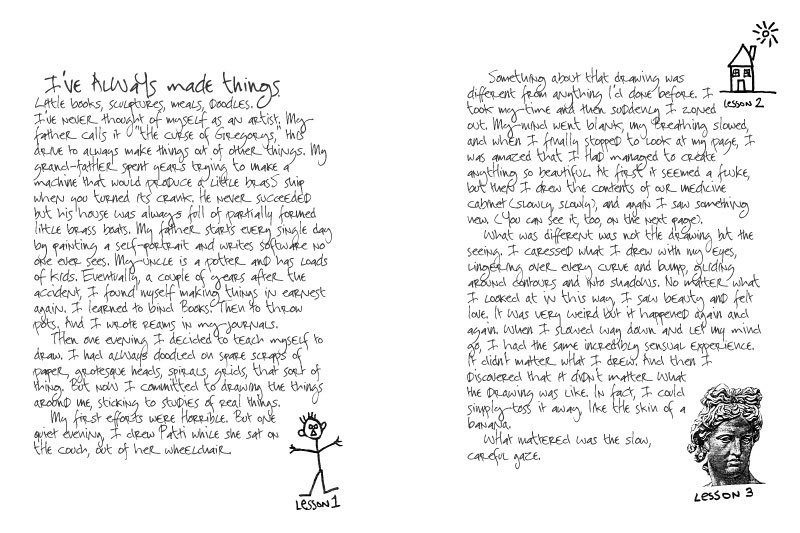 I've Always made things.
Little books, sculptures, meals, doodles.
I've never thought of myself as an artist. My
father calls it "the curse of Gregorys," this
drive to always make things out of other things. My
grand-father spent years trying to make a
machine that would produce a little brass ship
when you turned its crank. He never succeeded
but his house was always full of partially formed
little brass boats. My father starts every single day
by painting a self-portrait and writes software no
one ever sees. My uncle is a potter and has loads
of kids. Eventually, a couple of years after the
accident, I found myself making things in earnest
again. I learned to bind books. Then to throw
pots. And I wrote reams in my journals.
Then one evening I decided to teach myself to
draw. I had always doodled on spare scraps of
paper, grotesque heads, spirals, grids, that sort of
thing. But now I committed to drawing the things
around me, sticking to studies of real things.
My first efforts were horrible. But one
quiet evening, I drew Patti while she sat on
the couch, out of her wheelchair.
Lesson 1
Something about that drawing was
different from anything I'd done before. I
took my time and then suddenly I zoned
out. My mind went blank, my breathing slowed,
and when I finally stopped to look at my page, I
was amazed that I had managed to create
anything so beautiful. At first it seemed a fluke,
but then I drew the contents of our medicine
cabinet (slowly, slowly), and again I saw something
new. (You can see it, too, on the next page).
What was different was not the drawing but the
seeing. I caressed what I drew with my eyes,
lingering over every curve and bump, gliding
around contours and into shadows. No matter what
I looked at in this way, I saw beauty and felt
love. It was very weird but it happened again and
again. When I slowed way down and let my mind
go, I had the same incredibly sensual experience.
It didnt matter what I drew. And then I
discovered that it didnt matter what
the drawing was like. In fact, I could
simply toss it away, like the skin of a
banana.
What mattered was the slow,
careful gaze.
Lesson 2
Lesson 3